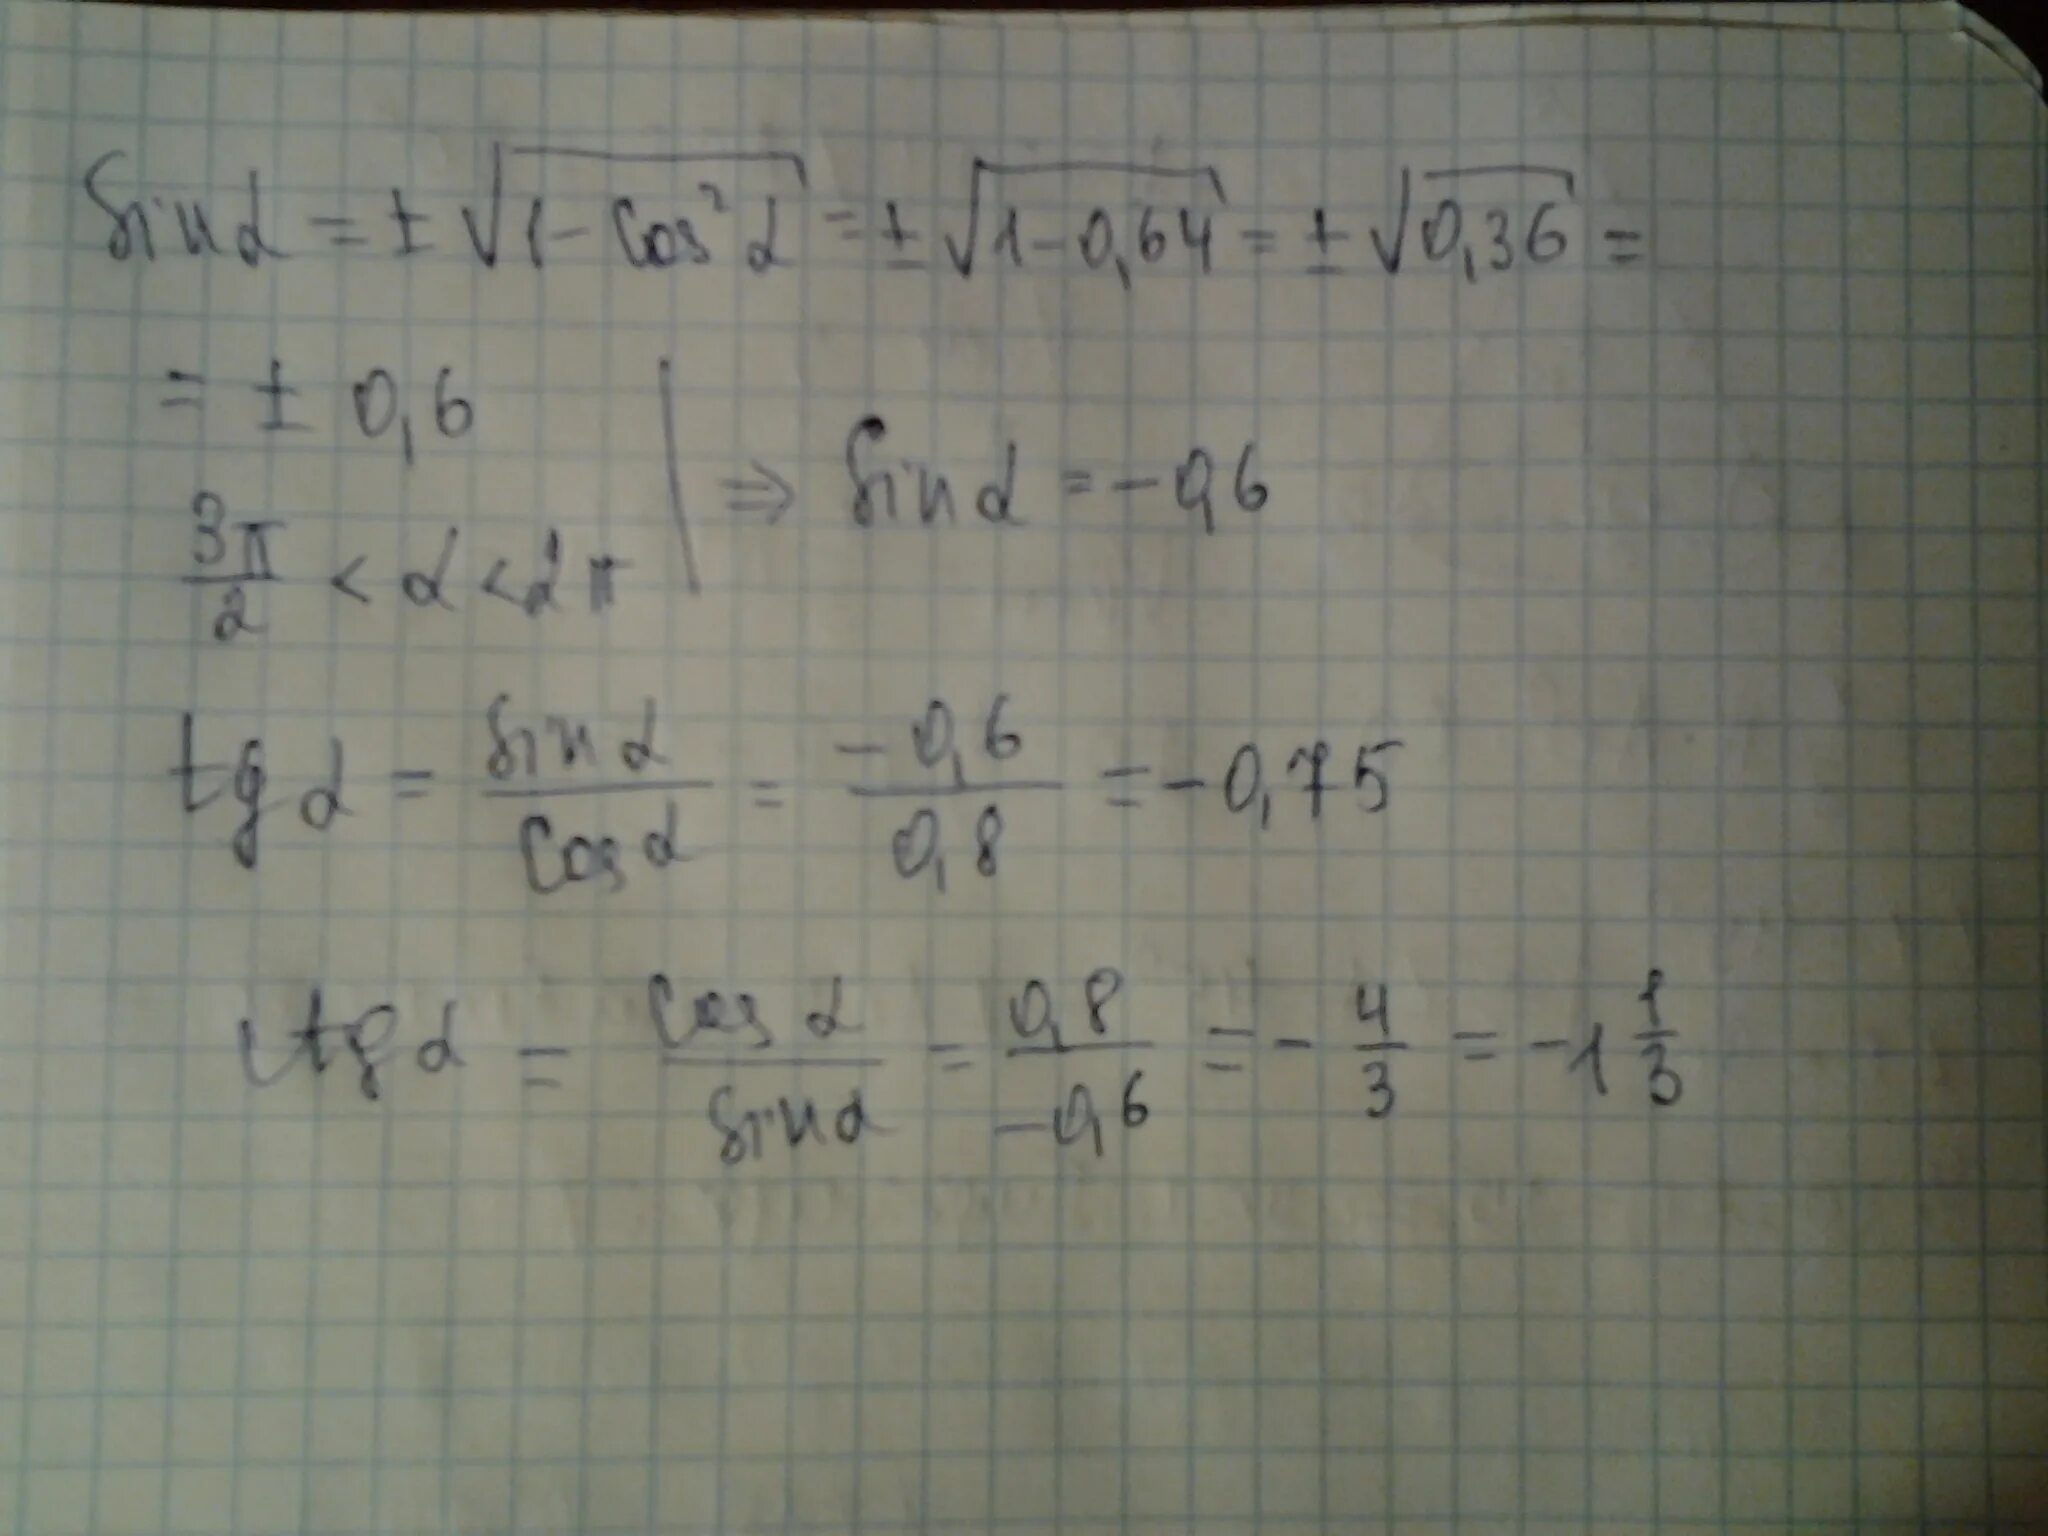 sin α = ± √(1 − cos² α) = ± √(1 − 0,64) = ± √0,36 =
= ± 0,6
3π/2 < α < 2π | ⇒ sin α = −0,6
tg α = sin α / cos α = −0,6 / 0,8 = −0,75
ctg α = cos α / sin α = 0,8 / −0,6 = − 4/3 = −1 1/3